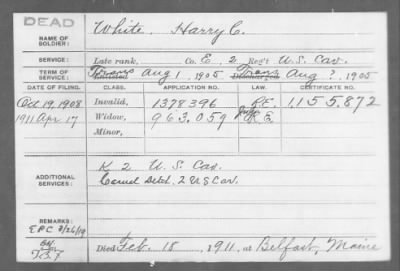 DEAD
NAME OF SOLDIER: White, Harry C.
SERVICE: Late rank, Co. E, 2 Reg't U.S. Cav.
TERM OF SERVICE: Trans Aug 1, 1905 Trans Aug ?, 1905
DATE OF FILING. CLASS. APPLICATION NO. LAW. CERTIFICATE NO.
Oct 19, 1908 Invalid, 1378396 1155.872
1911 Apr 17 Widow, 963.059
Minor,
ADDITIONAL SERVICES: K 2 U.S. Cav.
Detch. 2 U S Cav.
REMARKS:
Died Feb. 15, 1911, at Belfast, Maine